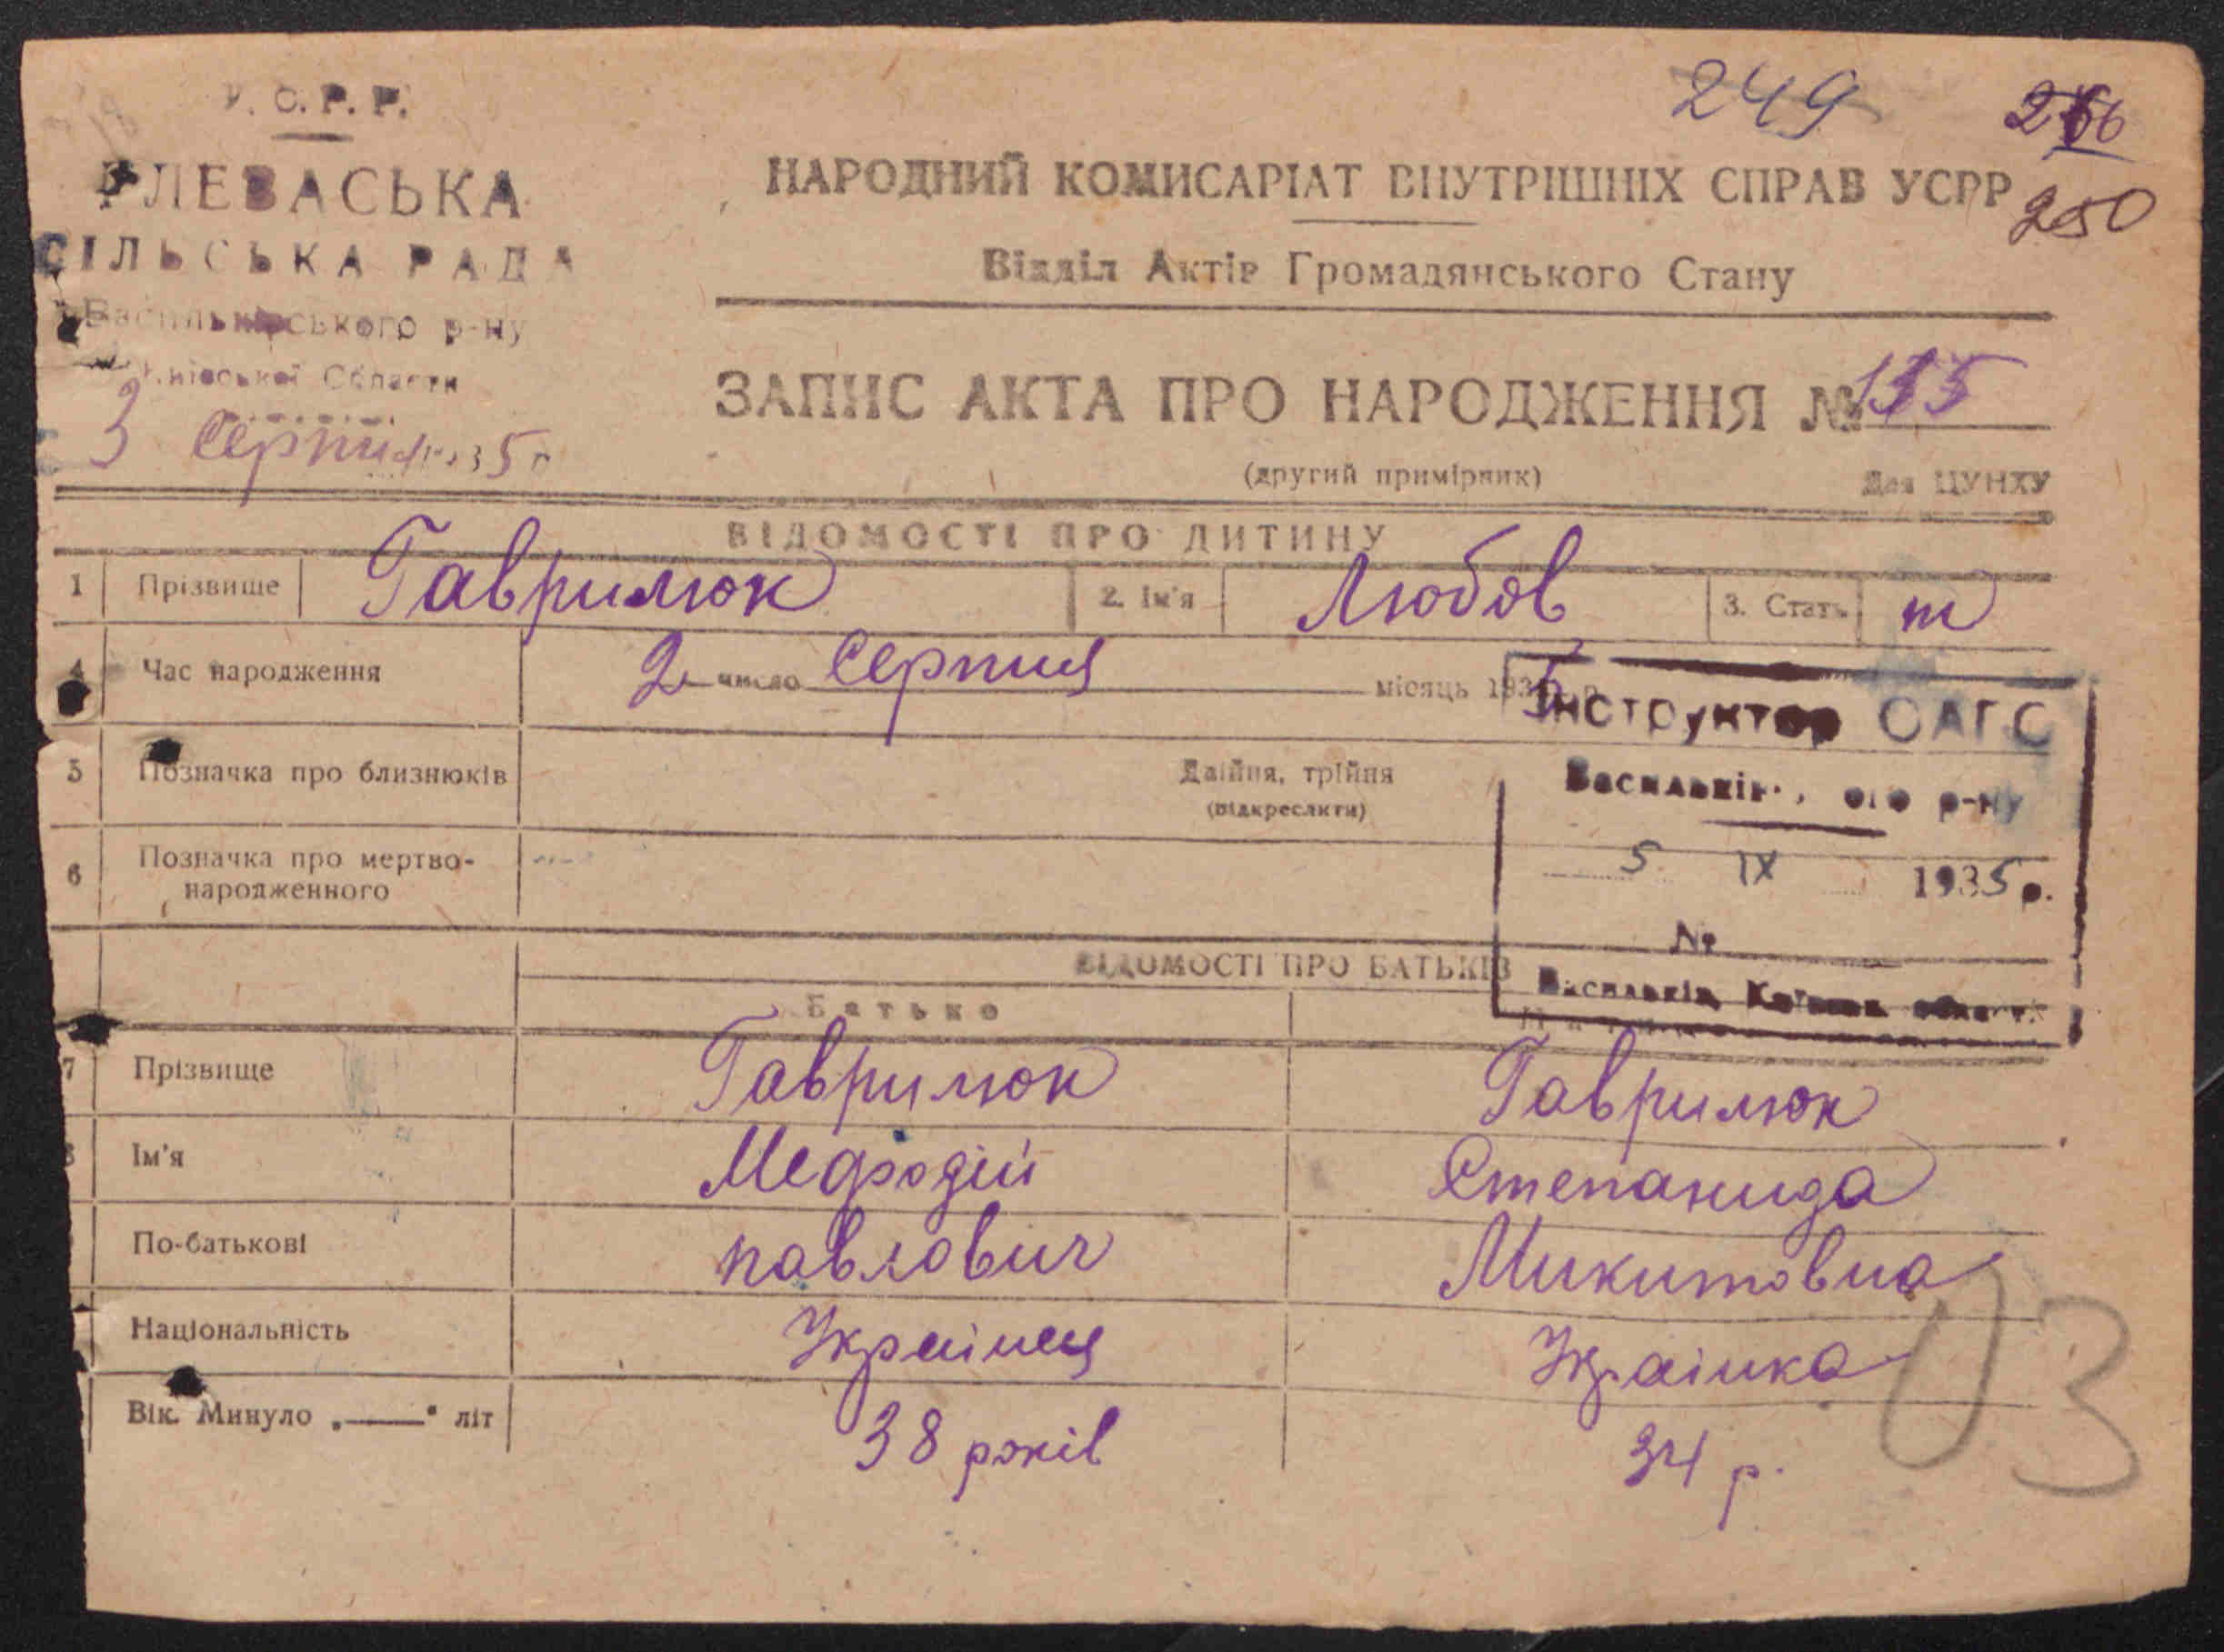 У. С. Р. Р.
ПЛЕВАСЬКА
СІЛЬСЬКА РАДА
Васильківського р-ну
Київської Області
3 Серпня 1935 р
249
250
НАРОДНИЙ КОМИСАРІАТ ВНУТРІШНІХ СПРАВ УСРР
Відділ Актів Громадянського Стану
ЗАПИС АКТА ПРО НАРОДЖЕННЯ № 135
(другий примірник)
Для ЦУНХУ
ВІДОМОСТІ ПРО ДИТИНУ
1 Прізвище Гаврилюк 2. Ім'я Любов 3. Стать ж
4 Час народження 2 число Серпня місяць 1935 р.
5 Позначка про близнюків Двійня, трійня
(підкреслити)
6 Позначка про мертво-
народженного
Інструктор ОАГС
Васильків ого р-ну
5 IX 1935 р.
№
Васильків, Київськ. област.
ВІДОМОСТІ ПРО БАТЬКІВ
Батько Мати
7 Прізвище Гаврилюк Гаврилюк
8 Ім'я Мефодій Степанида
По-батькові павлович Микитовна
Національність Українец Українка
Вік. Минуло „——" літ 38 років 34 р.
03